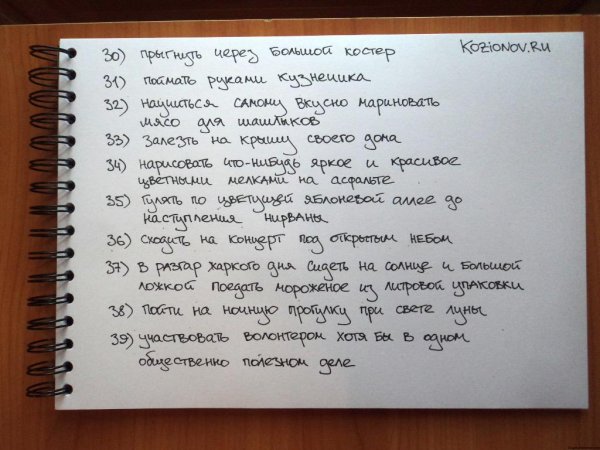 KOZIONOV.RU
30) прыгнуть через большой костер
31) поймать руками кузнечика
32) научиться самому вкусно мариновать
мясо для шашлыков
33) Залезть на крышу своего дома
34) нарисовать что-нибудь яркое и красивое
цветными мелками на асфальте
35) Гулять по цветущей яблоневой аллее до
наступления нирваны
36) сходить на концерт под открытым небом
37) В разгар жаркого дня сидеть на солнце и большой
ложкой поедать мороженое из литровой упаковки
38) пойти на ночную прогулку при свете луны
39) участвовать волонтером хотя бы в одном
общественно полезном деле